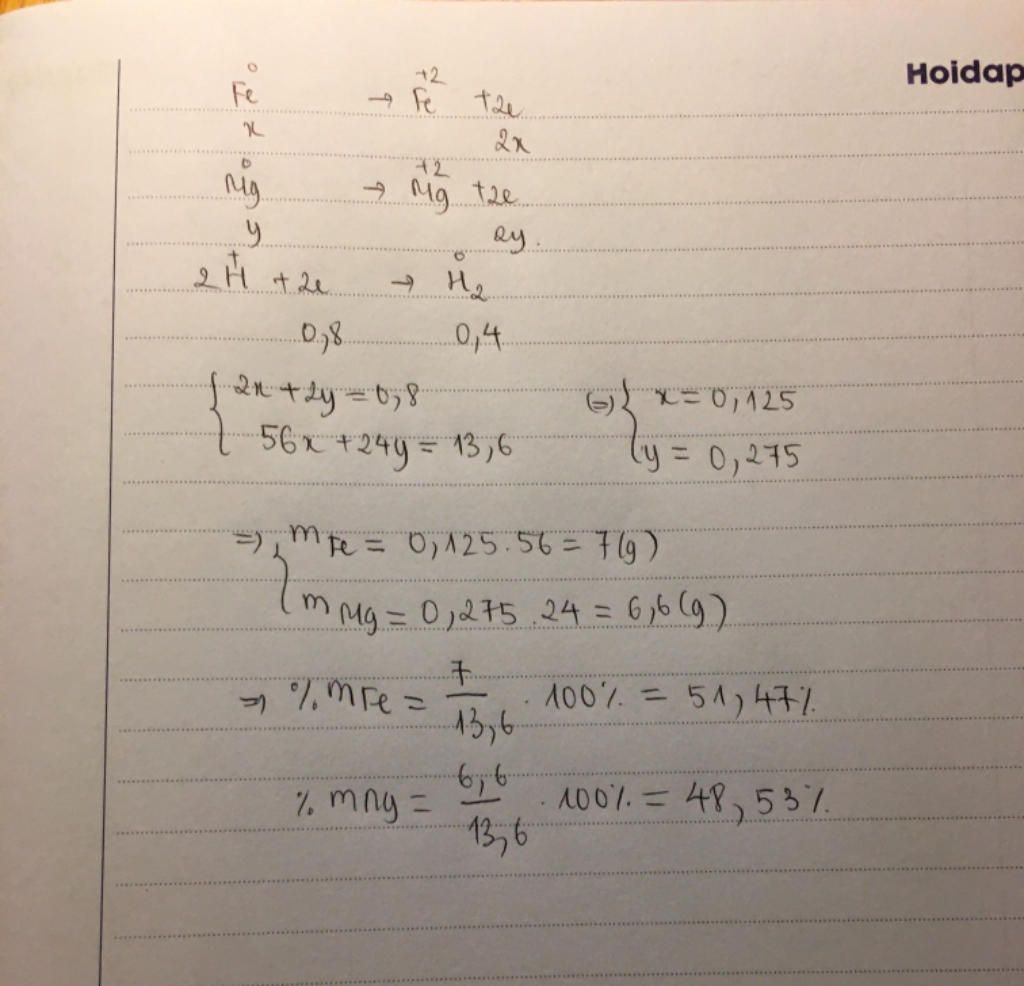 Hoidap
0
+2
Fe → Fe +2e
x 2x
0
+2
Mg → Mg +2e
y 2y.
+
0
2H +2e → H2
0,8 0,4
{ 2x + 2y = 0,8 (=) { x = 0,125
56x + 24y = 13,6 y = 0,275
=> { mFe = 0,125.56 = 7(g)
mMg = 0,275.24 = 6,6(g)
=> %mFe = 7/13,6 . 100% = 51,47%
%mMg = 6,6/13,6 . 100% = 48,53%